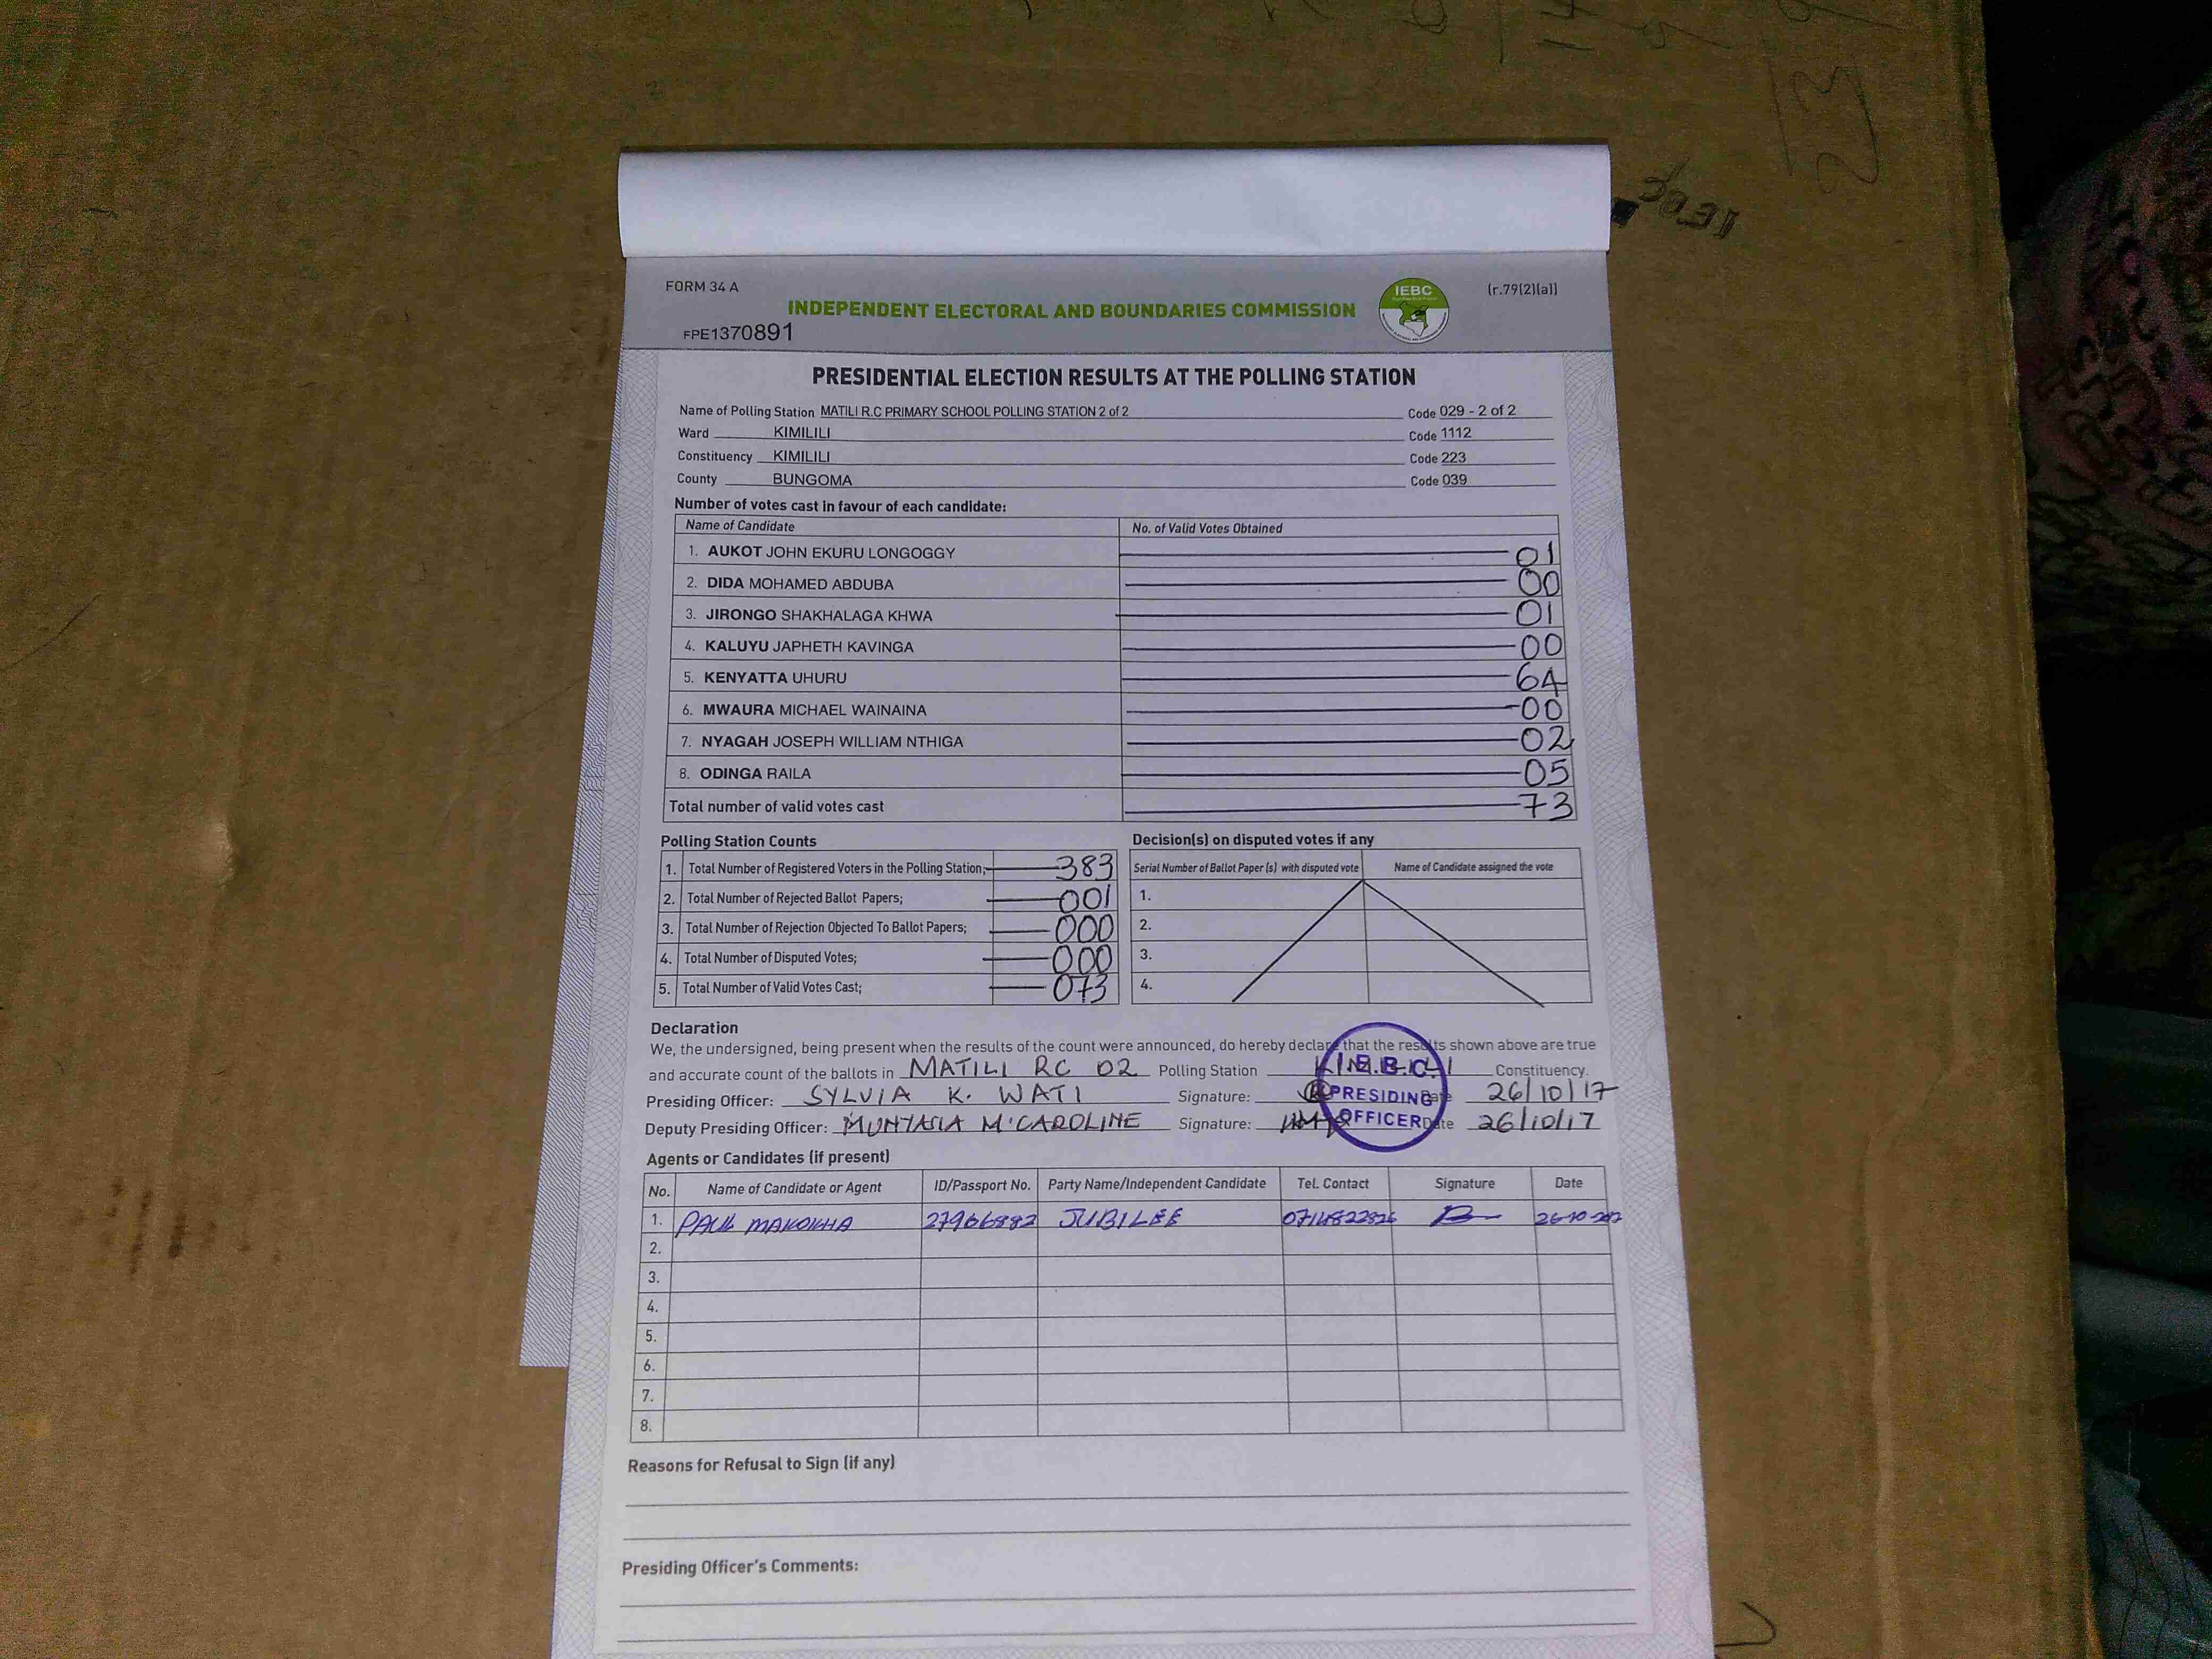 IEBC
FORM 34 A
IEBC
(r.79(2)(a))
INDEPENDENT ELECTORAL AND BOUNDARIES COMMISSION
FPE1370891
PRESIDENTIAL ELECTION RESULTS AT THE POLLING STATION
Name of Polling Station MATILI R.C PRIMARY SCHOOL POLLING STATION 2 of 2 Code 029 - 2 of 2
Ward KIMILILI Code 1112
Constituency KIMILILI Code 223
County BUNGOMA Code 039
Number of votes cast in favour of each candidate:
Name of Candidate No. of Valid Votes Obtained
1. AUKOT JOHN EKURU LONGOGGY 01
2. DIDA MOHAMED ABDUBA 00
3. JIRONGO SHAKHALAGA KHWA 01
4. KALUYU JAPHETH KAVINGA 00
5. KENYATTA UHURU 64
6. MWAURA MICHAEL WAINAINA 00
7. NYAGAH JOSEPH WILLIAM NTHIGA 02
8. ODINGA RAILA 05
Total number of valid votes cast 73
Polling Station Counts
1. Total Number of Registered Voters in the Polling Station; 383
2. Total Number of Rejected Ballot Papers; 001
3. Total Number of Rejection Objected To Ballot Papers; 000
4. Total Number of Disputed Votes; 000
5. Total Number of Valid Votes Cast; 073
Decision(s) on disputed votes if any
Serial Number of Ballot Paper (s) with disputed vote Name of Candidate assigned the vote
1.
2.
3.
4.
Declaration
We, the undersigned, being present when the results of the count were announced, do hereby declare that the results shown above are true
and accurate count of the ballots in MATILI RC 02 Polling Station KIMILILI Constituency.
Presiding Officer: SYLVIA K. WATI Signature: Date 26/10/17
Deputy Presiding Officer: MUNYASIA M'CAROLINE Signature: Date 26/10/17
I.E.B.C.
PRESIDING
OFFICER
Agents or Candidates (if present)
No. Name of Candidate or Agent ID/Passport No. Party Name/Independent Candidate Tel. Contact Signature Date
1. PAUL MAKOKHA JUBILEE 26-10-2017
2.
3.
4.
5.
6.
7.
8.
Reasons for Refusal to Sign (if any)
Presiding Officer's Comments: